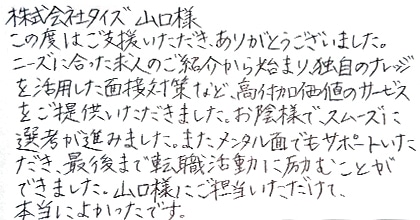 株式会社タイズ 山口様
この度はご支援いただき、ありがとうございました。
ニーズに合った求人のご紹介から始まり、独自のナレッジ
を活用した面接対策など、高付加価値のサービス
をご提供いただきました。お陰様でスムーズに
選考が進みました。またメンタル面でもサポートいた
だき、最後まで転職活動に励むことが
できました。山口様にご担当いただけて、
本当によかったです。